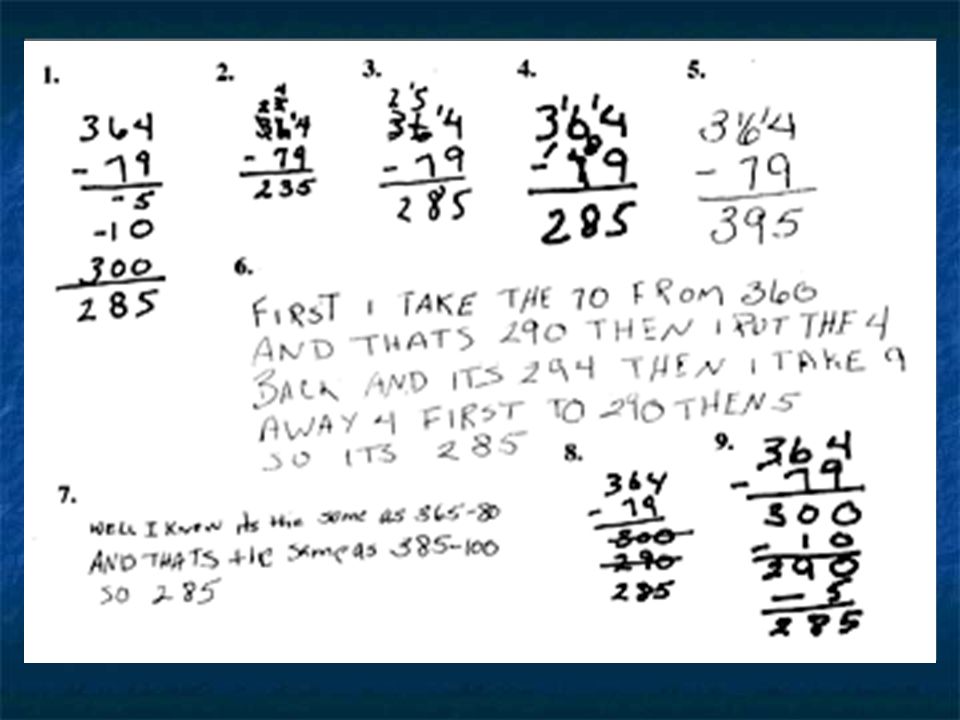 1.
364
- 79
-5
-10
300
285
2.
2
364
- 79
235
3.
2 5
36 14
- 79
285
4.
3 16 14
- 79
285
5.
3 16 14
- 79
395
6.
FIRST I TAKE THE 70 FROM 360
AND THATS 290 THEN I PUT THE 4
BACK AND ITS 294 THEN I TAKE 9
AWAY 4 FIRST TO 290 THEN 5
SO ITS 285
7.
WELL I KNEW its the same as 365-80
AND THATS the same as 385-100
SO 285
8.
364
- 79
300
290
285
9.
364
- 79
300
- 10
290
- 5
285